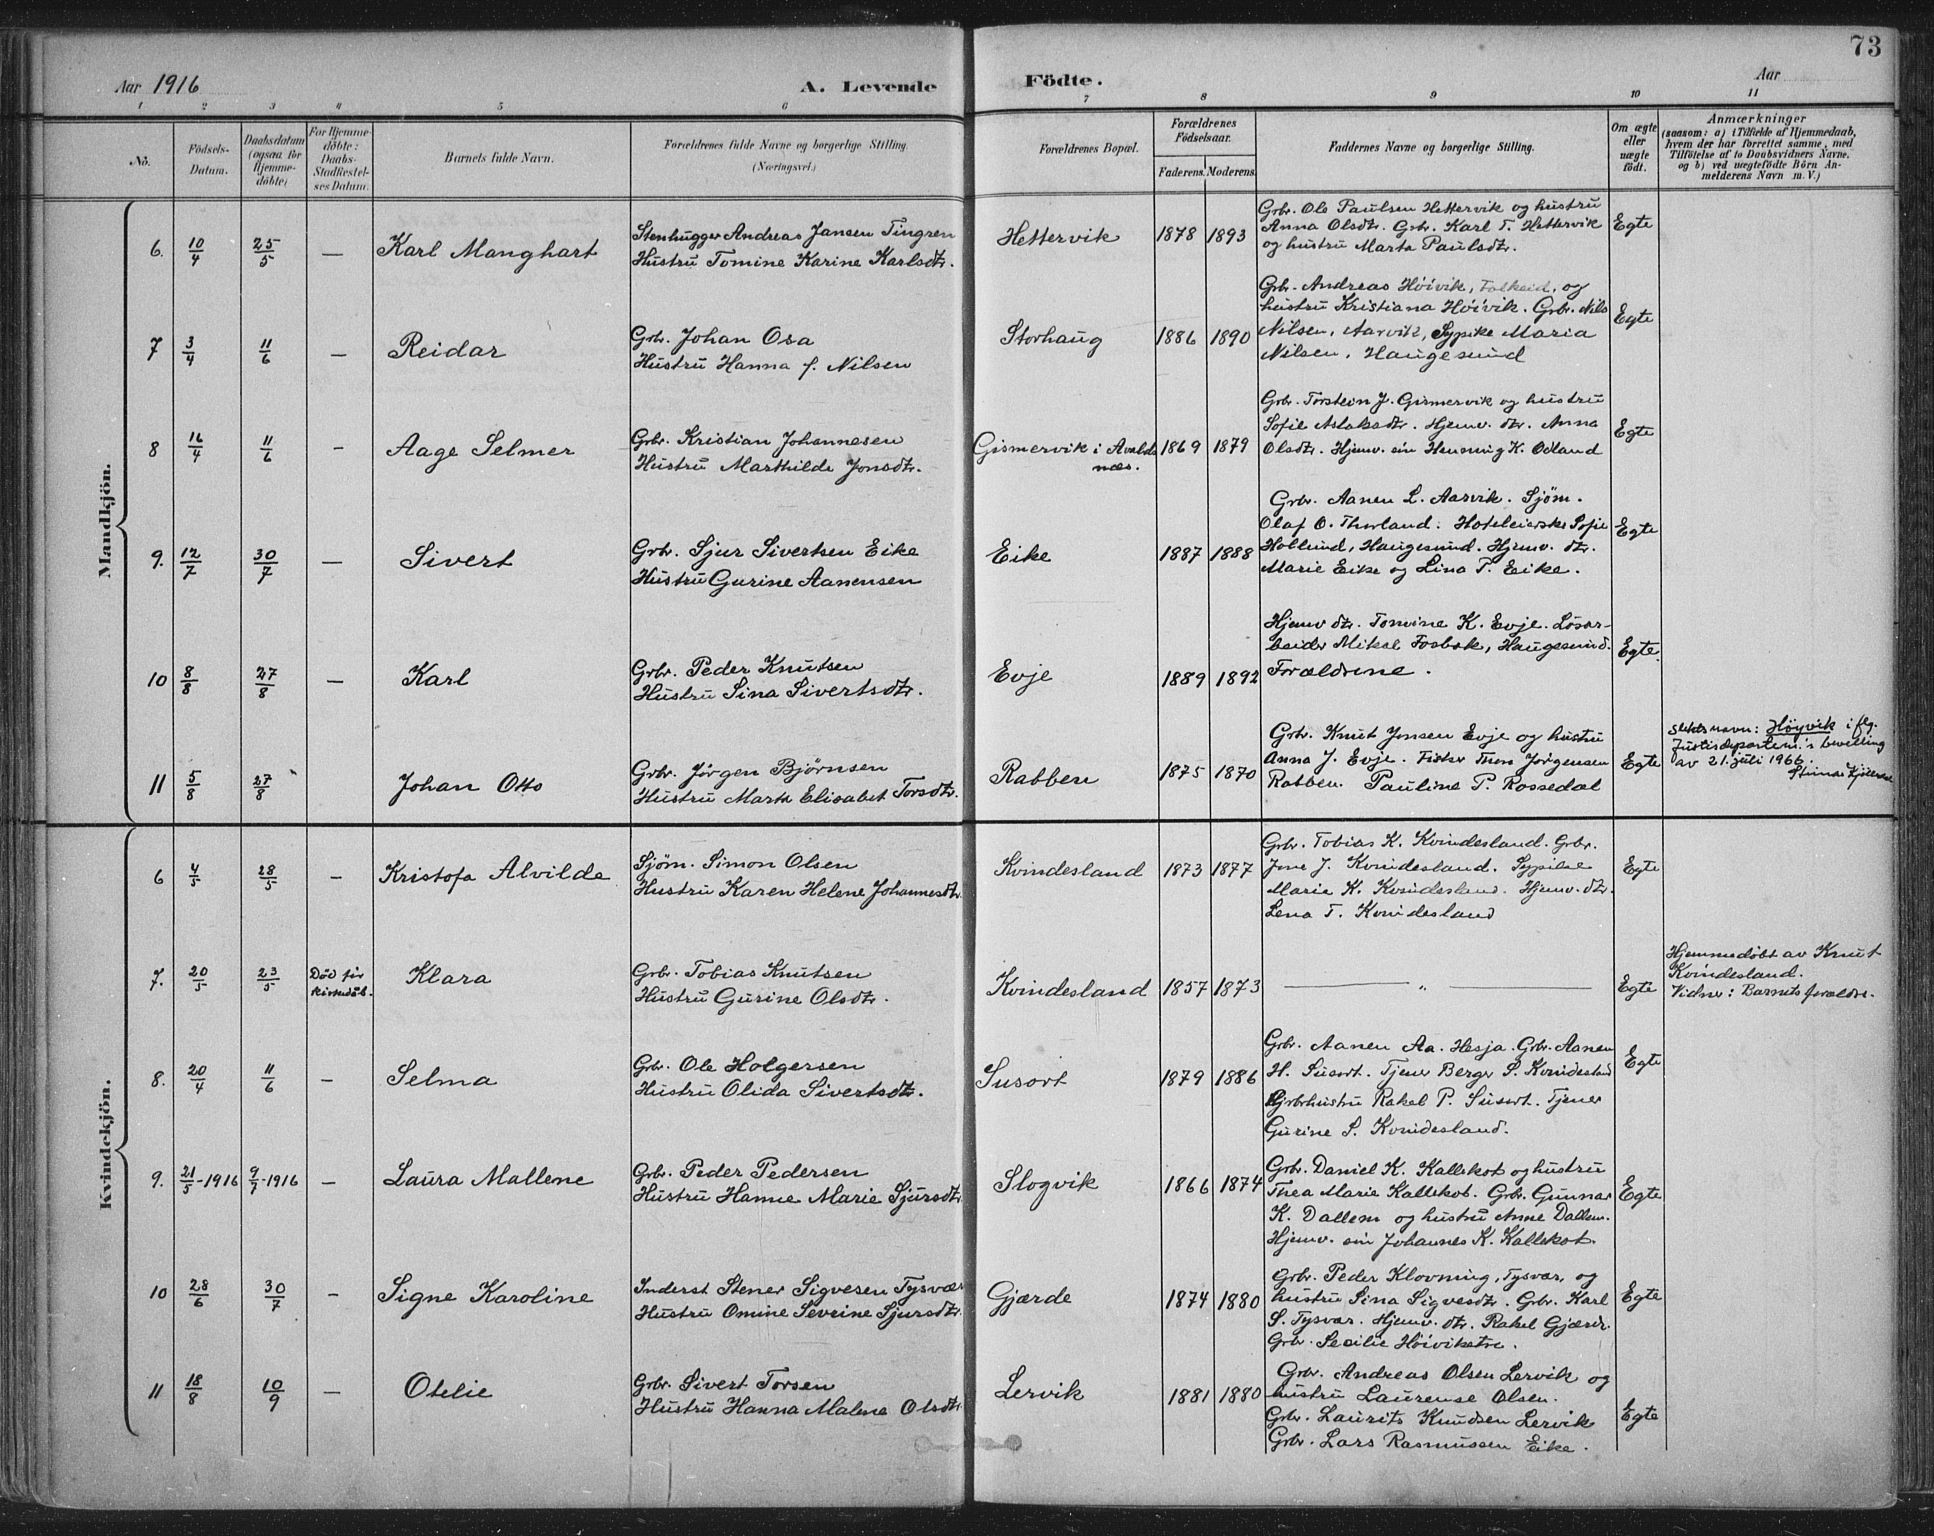 73
Aar 1916
A. Levende Födte.
Aar
1 2 3 4 5 6 7 8 9 10 11
No.
Födsels-Datum.
Daabsdatum (ogsaa for Hjemme-döbte)
For Hjemme-döbte: Daabs-Stadfæstel-ses Datum.
Barnets fulde Navn.
Forældrenes fulde Navne og borgerlige Stilling. (Næringsvei.)
Forældrenes Bopæl.
Forældrenes Födselsaar.
Faderens. Moderens.
Faddernes Navne og borgerlige Stilling.
Om ægte eller uægte födt.
Anmærkninger
(saasom: a) i Tilfælde af Hjemmedaab, hvem der har forrettet samme, med Tilföielse af to Daabsvidners Navne, og b) ved uægtefödte Börn An-melderens Navn m. V.)
Mandkjön.
6. 10/4 25/5 — Karl Manghart
Stenhugger Andreas Jansen Tingren
Hustru Tomine Karine Karlsdtr.
Hettervik 1878 1893
Grbr. Ole Paulsen Hettervik og hustru
Anna Olsdtr. Grbr. Karl T. Hettervik
og hustru Marta Paulsdtr.
Egte
7 3/4 11/6 — Reidar
Grbr. Johan Osa
Hustru Hanna f. Nilsen
Storhaug 1886 1890
Grbr. Andreas Høivik, Falkeid, og
hustru Kristiana Høivik. Grbr. Nils
Nilsen, Aarvik, Sypike Maria
Nilsen, Haugesund
Egte
8 16/4 11/6 — Aage Selmer
Grbr. Kristian Johannesen
Hustru Marthilde Jonsdtr.
Gismervik i Avalds
næs. 1869 1879
Grbr. Torstein J. Gismervik og hustru
Sofie Aslaksdtr. Hjemv. dtr. Anna
Olsdtr. Hjemv. søn Henning K. Ødland
Egte
9. 12/7 30/7 — Sivert
Grbr. Sjur Sivertsen Eike
Hustru Gurine Aanensen
Eike 1887 1888
Grbr. Aanen L. Aarvik. Sjøm.
Olaf O. Thorland. Hoteleierske Sofie
Hollund, Haugesund. Hjemv. dtr.
Marie Eike og Lina T. Eike.
Egte
10 8/8 27/8 — Karl
Grbr. Peder Knutsen
Hustru Sina Sivertsdtr.
Evje 1889 1892
Hjemv dtr. Tomine K. Evje. Løsar-
beider Mikal Fosbak, Haugesund.
Forældrene.
Egte.
11 5/8 27/8 Johan Otto
Grbr. Jørgen Bjørnsen
Hustru Marta Elisabet Torsdtr.
Rabben 1875 1870
Grbr. Knut Jonsen Evje og hustru
Anna J. Evje. Fisker Thom Jørgensen
Rabben. Pauline P. Rossedal
Egte
Slektsnavn: Høyvik i flg.
Justisdepartem.'s bevilling
av 21. juli 1966
Kvindekjön.
6 4/5 28/5 — Kristofa Alvilde
Sjøm. Simon Olsen
Hustru Karen Helene Johannesdtr.
Kvindesland 1873 1877
Grbr. Tobias K. Kvindesland. Grbr.
Jone J. Kvindesland. Sypike
Marie K. Kvindesland. Hjemv. dtr.
Lena T. Kvindesland
Egte
7. 20/5 23/5 Død før
kirkedåb. Klara
Grbr. Tobias Knutsen
Hustru Gurine Olsdtr.
Kvindesland 1857 1873 — „ —
Egte
Hjemmedøbt av Knut
Kvindesland.
Vidner: Barnets forældre.
8. 20/4 11/6 — Selma
Grbr. Ole Holgersen
Hustru Olida Sivertsdtr.
Susort 1879 1886
Grbr. Aanen Aa. Hesja. Grbr. Aanen
H. Susort. Tjener Berge S. Kvindesland
Grbrhustru Rakel P. Susort. Tjener
Gurine S. Kvindesland.
Egte
9. 21/5-1916 9/7-1916 — Laura Mallene
Grbr. Peder Pedersen
Hustru Hanne Marie Sjursdtr.
Slogvik 1866 1874
Grbr. Daniel K. Kallekot og hustru
Thea Marie Kallekot. Grbr. Gunnar
K. Dallem og hustru Anne Dallem.
Hjemv. søn Johannes K. Kallekot.
Egte
10 28/6 30/7 — Signe Karoline
Inderst Stener Sigvesen Tysvær
Hustru Omine Severine Sjursdtr.
Gjærde 1874 1880
Grbr. Peder Klovning, Tysvær, og
hustru Sina Sigvesdtr. Grbr. Karl
S. Tysvær. Hjemv. dtr. Rakel Gjærde.
Grbr. Secilie Høiviketre.
Egte
11 18/8 10/9 — Otelie
Grbr. Sivert Torsen
Hustru Hanna Malene Olsdtr.
Lervik 1881 1880
Grbr. Andreas Olsen Lervik og
hustru Laurense Olsen.
Grbr. Laurits Knudsen Lervik
Grbr. Lars Rasmussen Eike.
Egte